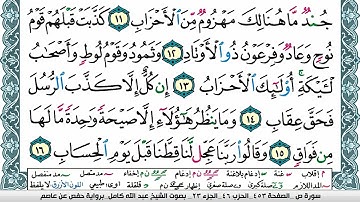 جُندٌ مَّا هُنَالِكَ مَهْزُومٌ مِّنَ ٱلْأَحْزَابِ ١١ كَذَّبَتْ قَبْلَهُمْ قَوْمُ
نُوحٍ وَعَادٌ وَفِرْعَوْنُ ذُو ٱلْأَوْتَادِ ١٢ وَثَمُودُ وَقَوْمُ لُوطٍ وَأَصْحَٰبُ
لْـَٔيْكَةِ أُو۟لَٰٓئِكَ ٱلْأَحْزَابُ ١٣ إِن كُلٌّ إِلَّا كَذَّبَ ٱلرُّسُلَ
فَحَقَّ عِقَابِ ١٤ وَمَا يَنظُرُ هَٰٓؤُلَآءِ إِلَّا صَيْحَةً وَٰحِدَةً مَّا لَهَا
مِن فَوَاقٍ ١٥ وَقَالُوا۟ رَبَّنَا عَجِّل لَّنَا قِطَّنَا قَبْلَ يَوْمِ ٱلْحِسَابِ ١٦
سورة ص . الصفحة ٤٥٣ . الحزب ٤٦ . الجزء ٢٣ . بصوت الشيخ عبد الله كامل . برواية حفص عن عاصم